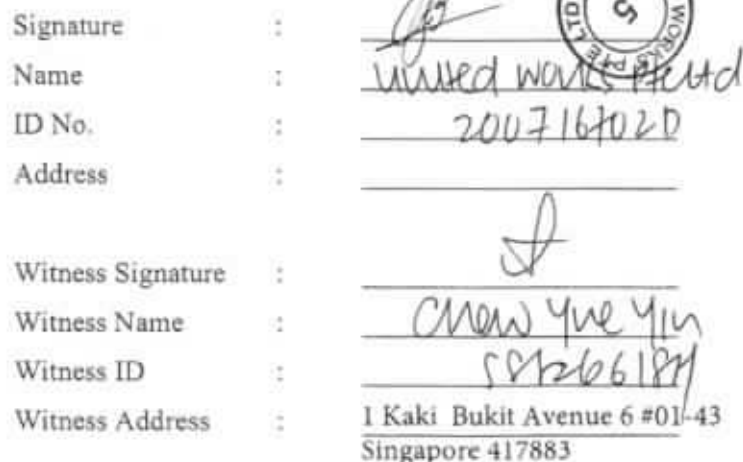 Signature :
WORKS PTE LTD
5
Name : United Works Pte Ltd
ID No. : 200716702D
Address :
Witness Signature :
Witness Name : Chew Yue Yin
Witness ID :
Witness Address : 1 Kaki Bukit Avenue 6 #01-43
Singapore 417883